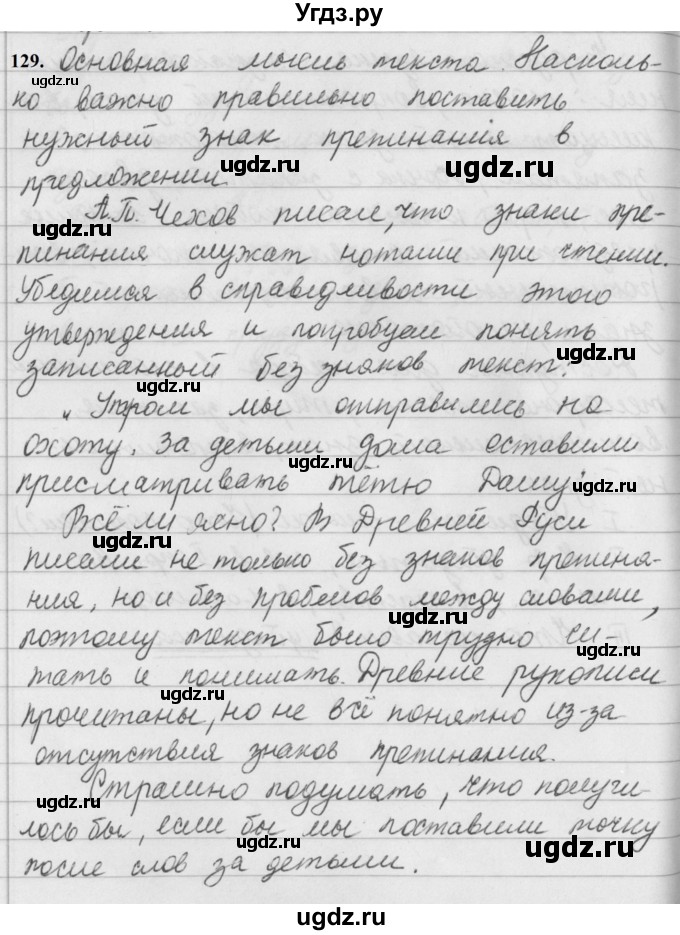 Угдз.ру
129. Основная мысль текста Насколь-
ugdz.ru
ко важно правильно поставить
ugdz.ru
нужный знак препинания в
ugdz.ru ugdz.ru
предложении.
А.П. Чехов писал, что знаки пре-
ugdz.ru
пинания служат нотами при чтении.
ugdz.ru
Убедимся в справедливости этого
ugdz.ru
утверждения и попробуем понять
ugdz.ru
записанный без знаков текст:
ugdz.ru
„Утром мы отправились на
ugdz.ru
охоту. За детьми дома оставили
ugdz.ru
присматривать тётю Дашу"
ugdz.ru
Всё ли ясно? В Древней Руси
ugdz.ru
писали не только без знаков препина-
ugdz.ru
ния, но и без пробелов между словами,
ugdz.ru
поэтому текст было трудно чи-
ugdz.ru
тать и понимать. Древние рукописи
ugdz.ru
прочитаны, но не всё понятно из-за
ugdz.ru
отсутствия знаков препинания.
Страшно подумать, что получи-
ugdz.ru
лось бы, если бы мы поставили точку
ugdz.ru
после слов за детьми.
ugdz.ru ugdz.ru